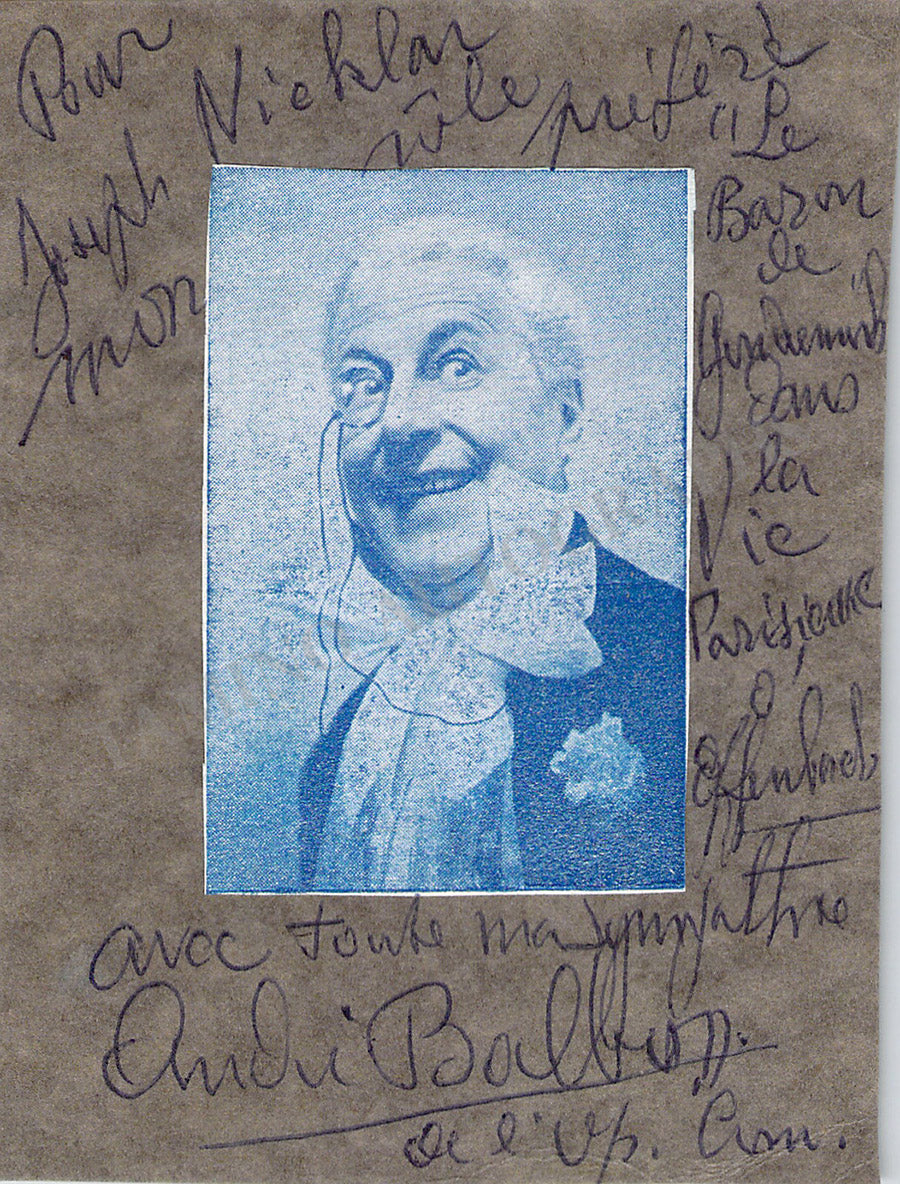 Pour
Joseph Nicklar
mon rôle préféré
"Le
Baron
de
Gondremark
dans
la
Vie
Parisienne
d'
Offenbach
avec toute ma sympathie
André Balbon.
de l'Op. Com.